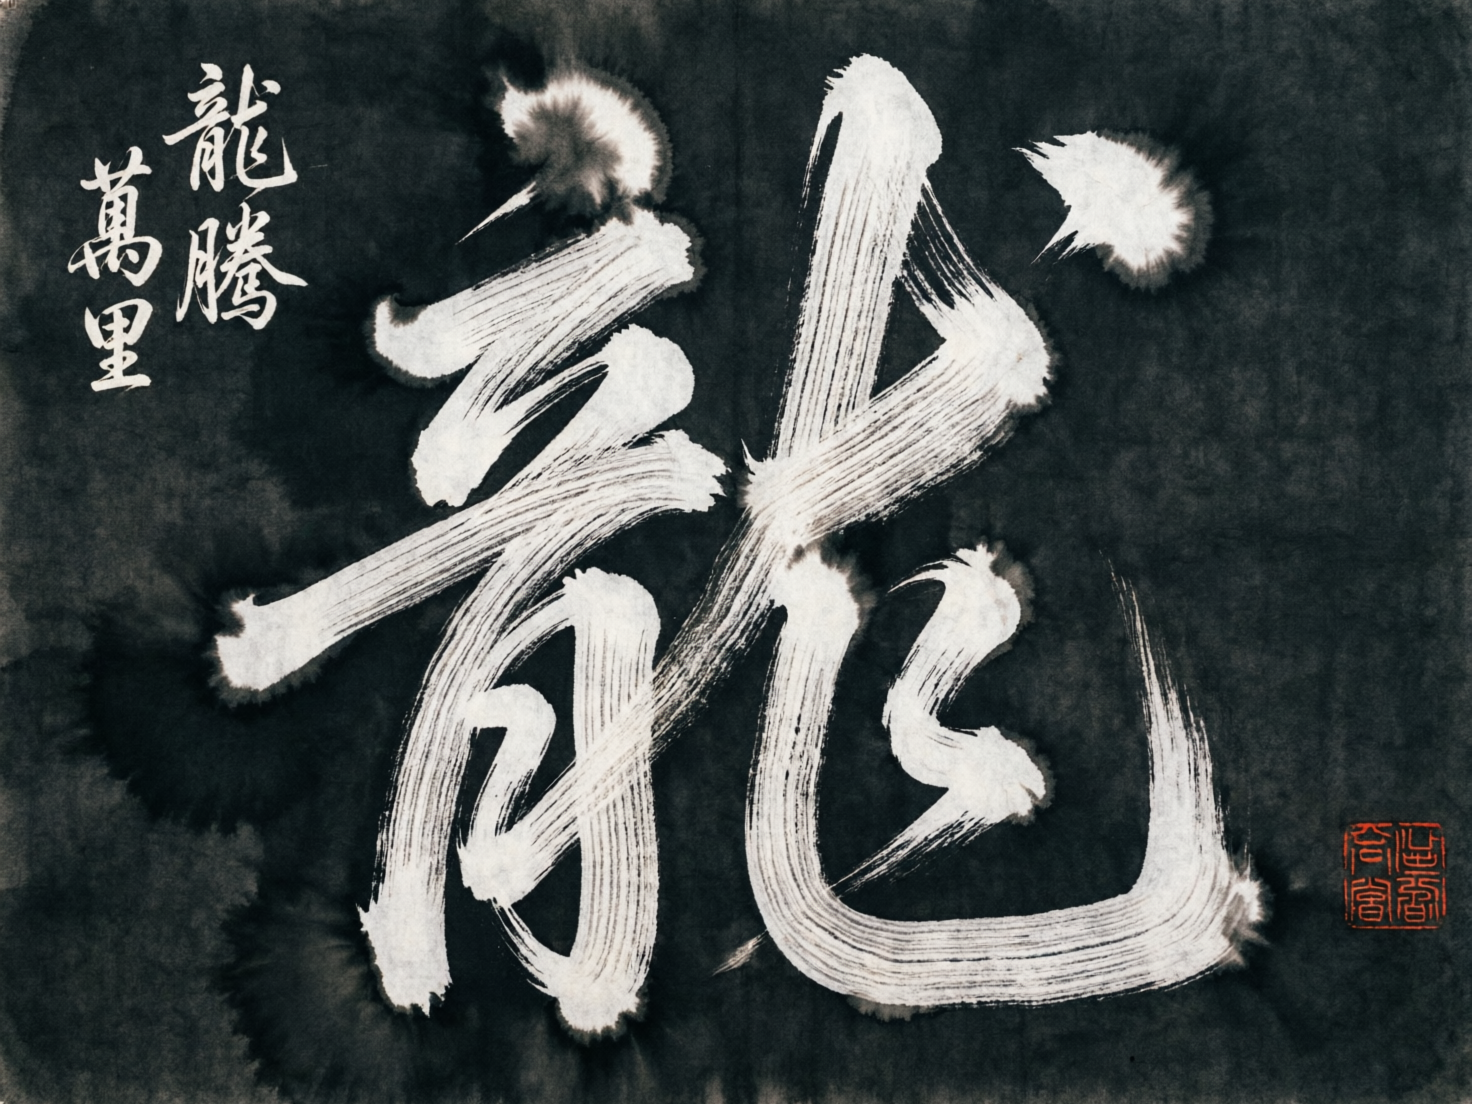 龍
龍騰
萬里